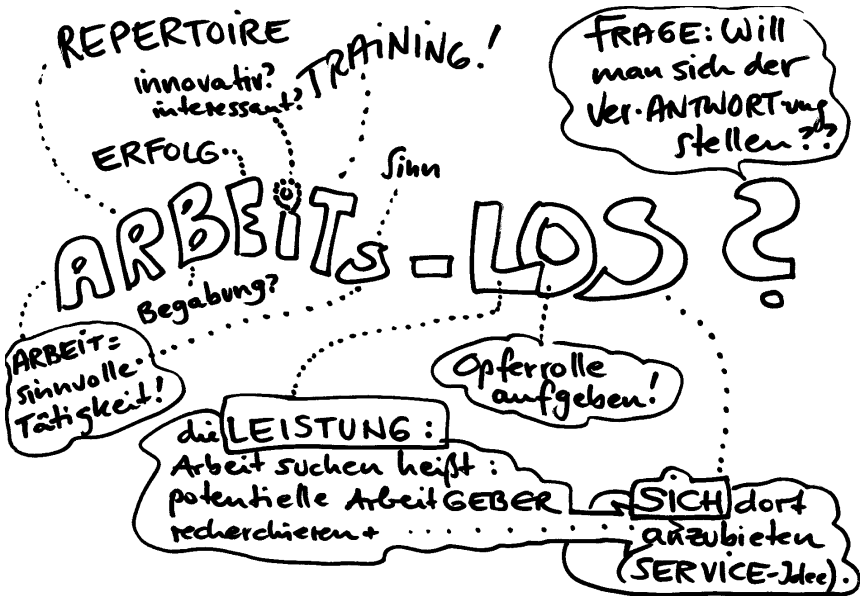 REPERTOIRE
innovativ?
interessant?
TRAiNiNG!
ERFOLG
Sinn
FRAGE: Will
man sich der
Ver.ANTWORTung
stellen??
ARBEiTs-LOS?
Begabung?
ARBEIT=
sinnvolle
Tätigkeit!
Opferrolle
aufgeben!
die LEISTUNG:
Arbeit suchen heißt:
potentielle ArbeitGEBER
recherchieren +
SICH dort
anzubieten
(SERVICE-Idee).